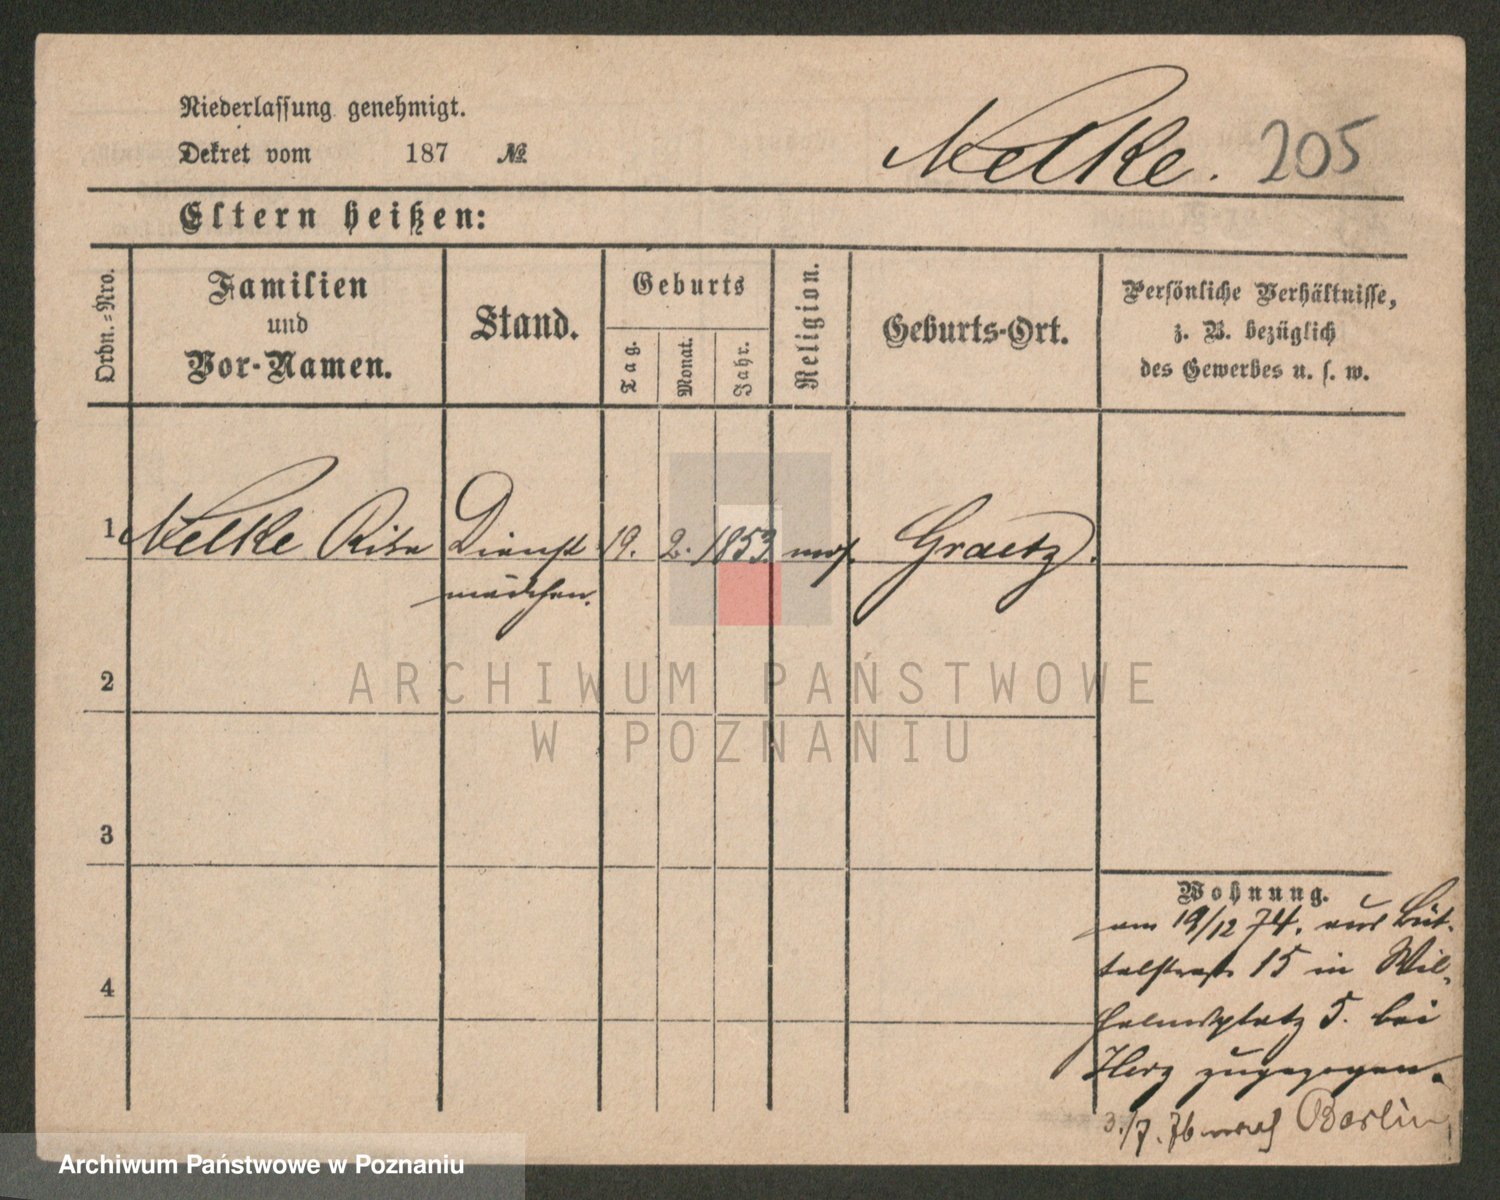 Niederlassung genehmigt.
Dekret vom 187 №
Nelke. 205
Eltern heißen:
Ordn.-Nro.
Familien
und
Vor-Namen.
Stand.
Geburts
Tag.
Monat.
Jahr.
Religion.
Geburts-Ort.
Persönliche Verhältnisse,
z. B. bezüglich
des Gewerbes u. s. w.
1 Nelke Rosa Dienst 19. 2. 1853. mos. Graetz.
mädchen.
2
3
4
Wohnung.
am 19/12 74. aus Büt-
telstraße 15 in Wil-
helmsplatz 5. bei
Herz zugezogen.
3./7. 76 nach Berlin
ARCHIWUM PAŃSTWOWE
W POZNANIU
Archiwum Państwowe w Poznaniu